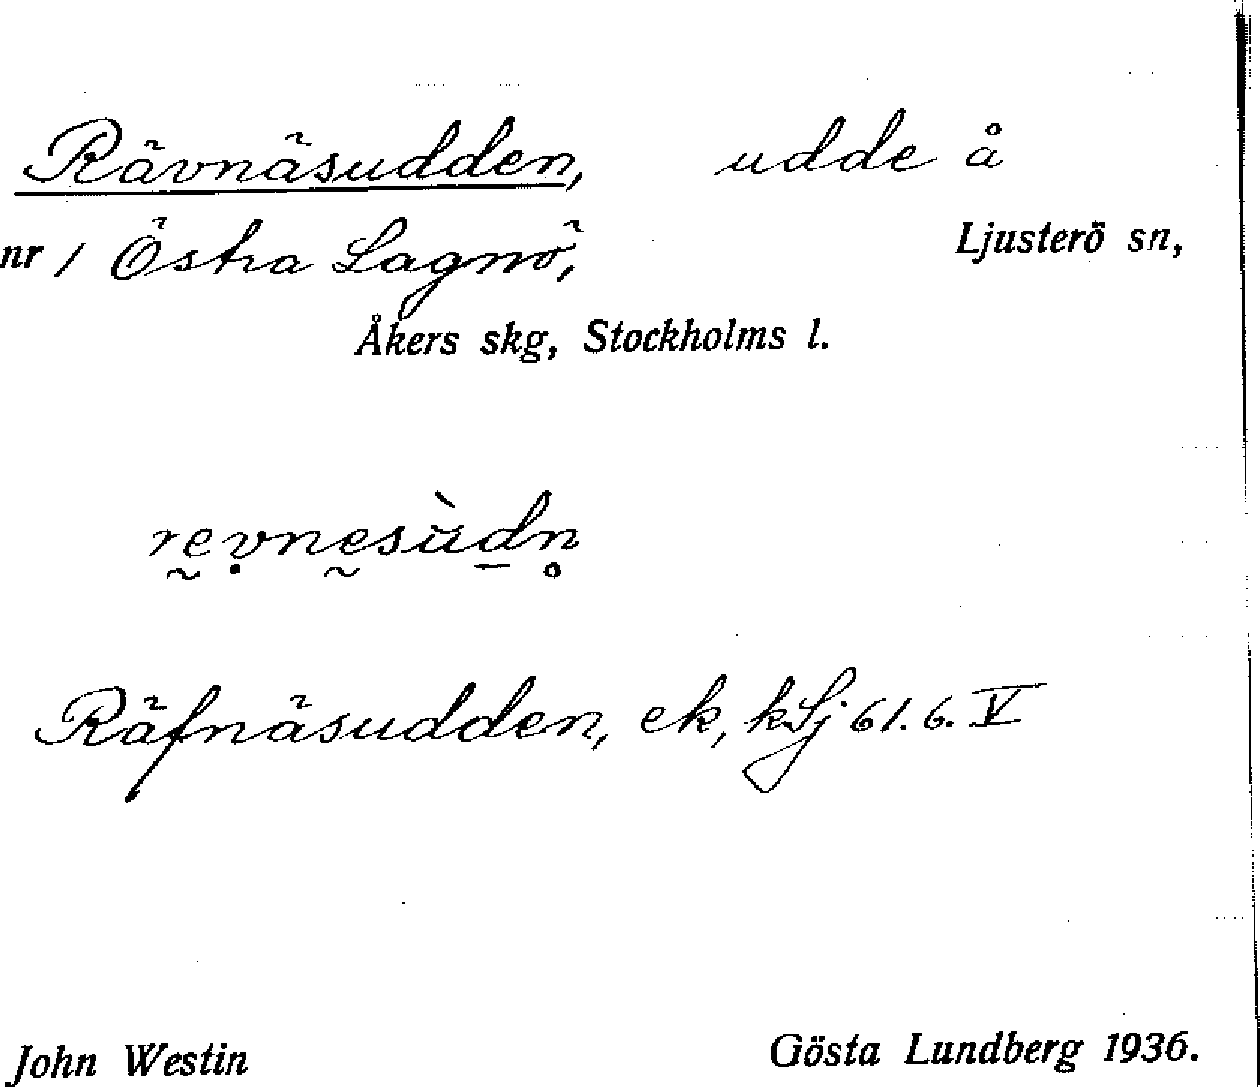 Rävnäsudden, udde å
nr 1 Östra Lagnö, Ljusterö sn,
Åkers skg, Stockholms l.
rę̰ṿnḛsùd̲n̥
Räfnäsudden, ek, kLj 61.6. V
John Westin Gösta Lundberg 1936.